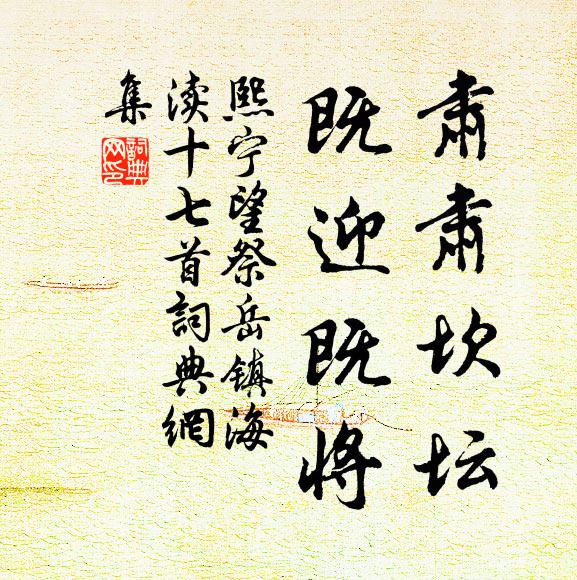 肃肃坎坛
既迎既将
熙宁望祭岳镇海
渎十七首詞典網
集
詞典
网印